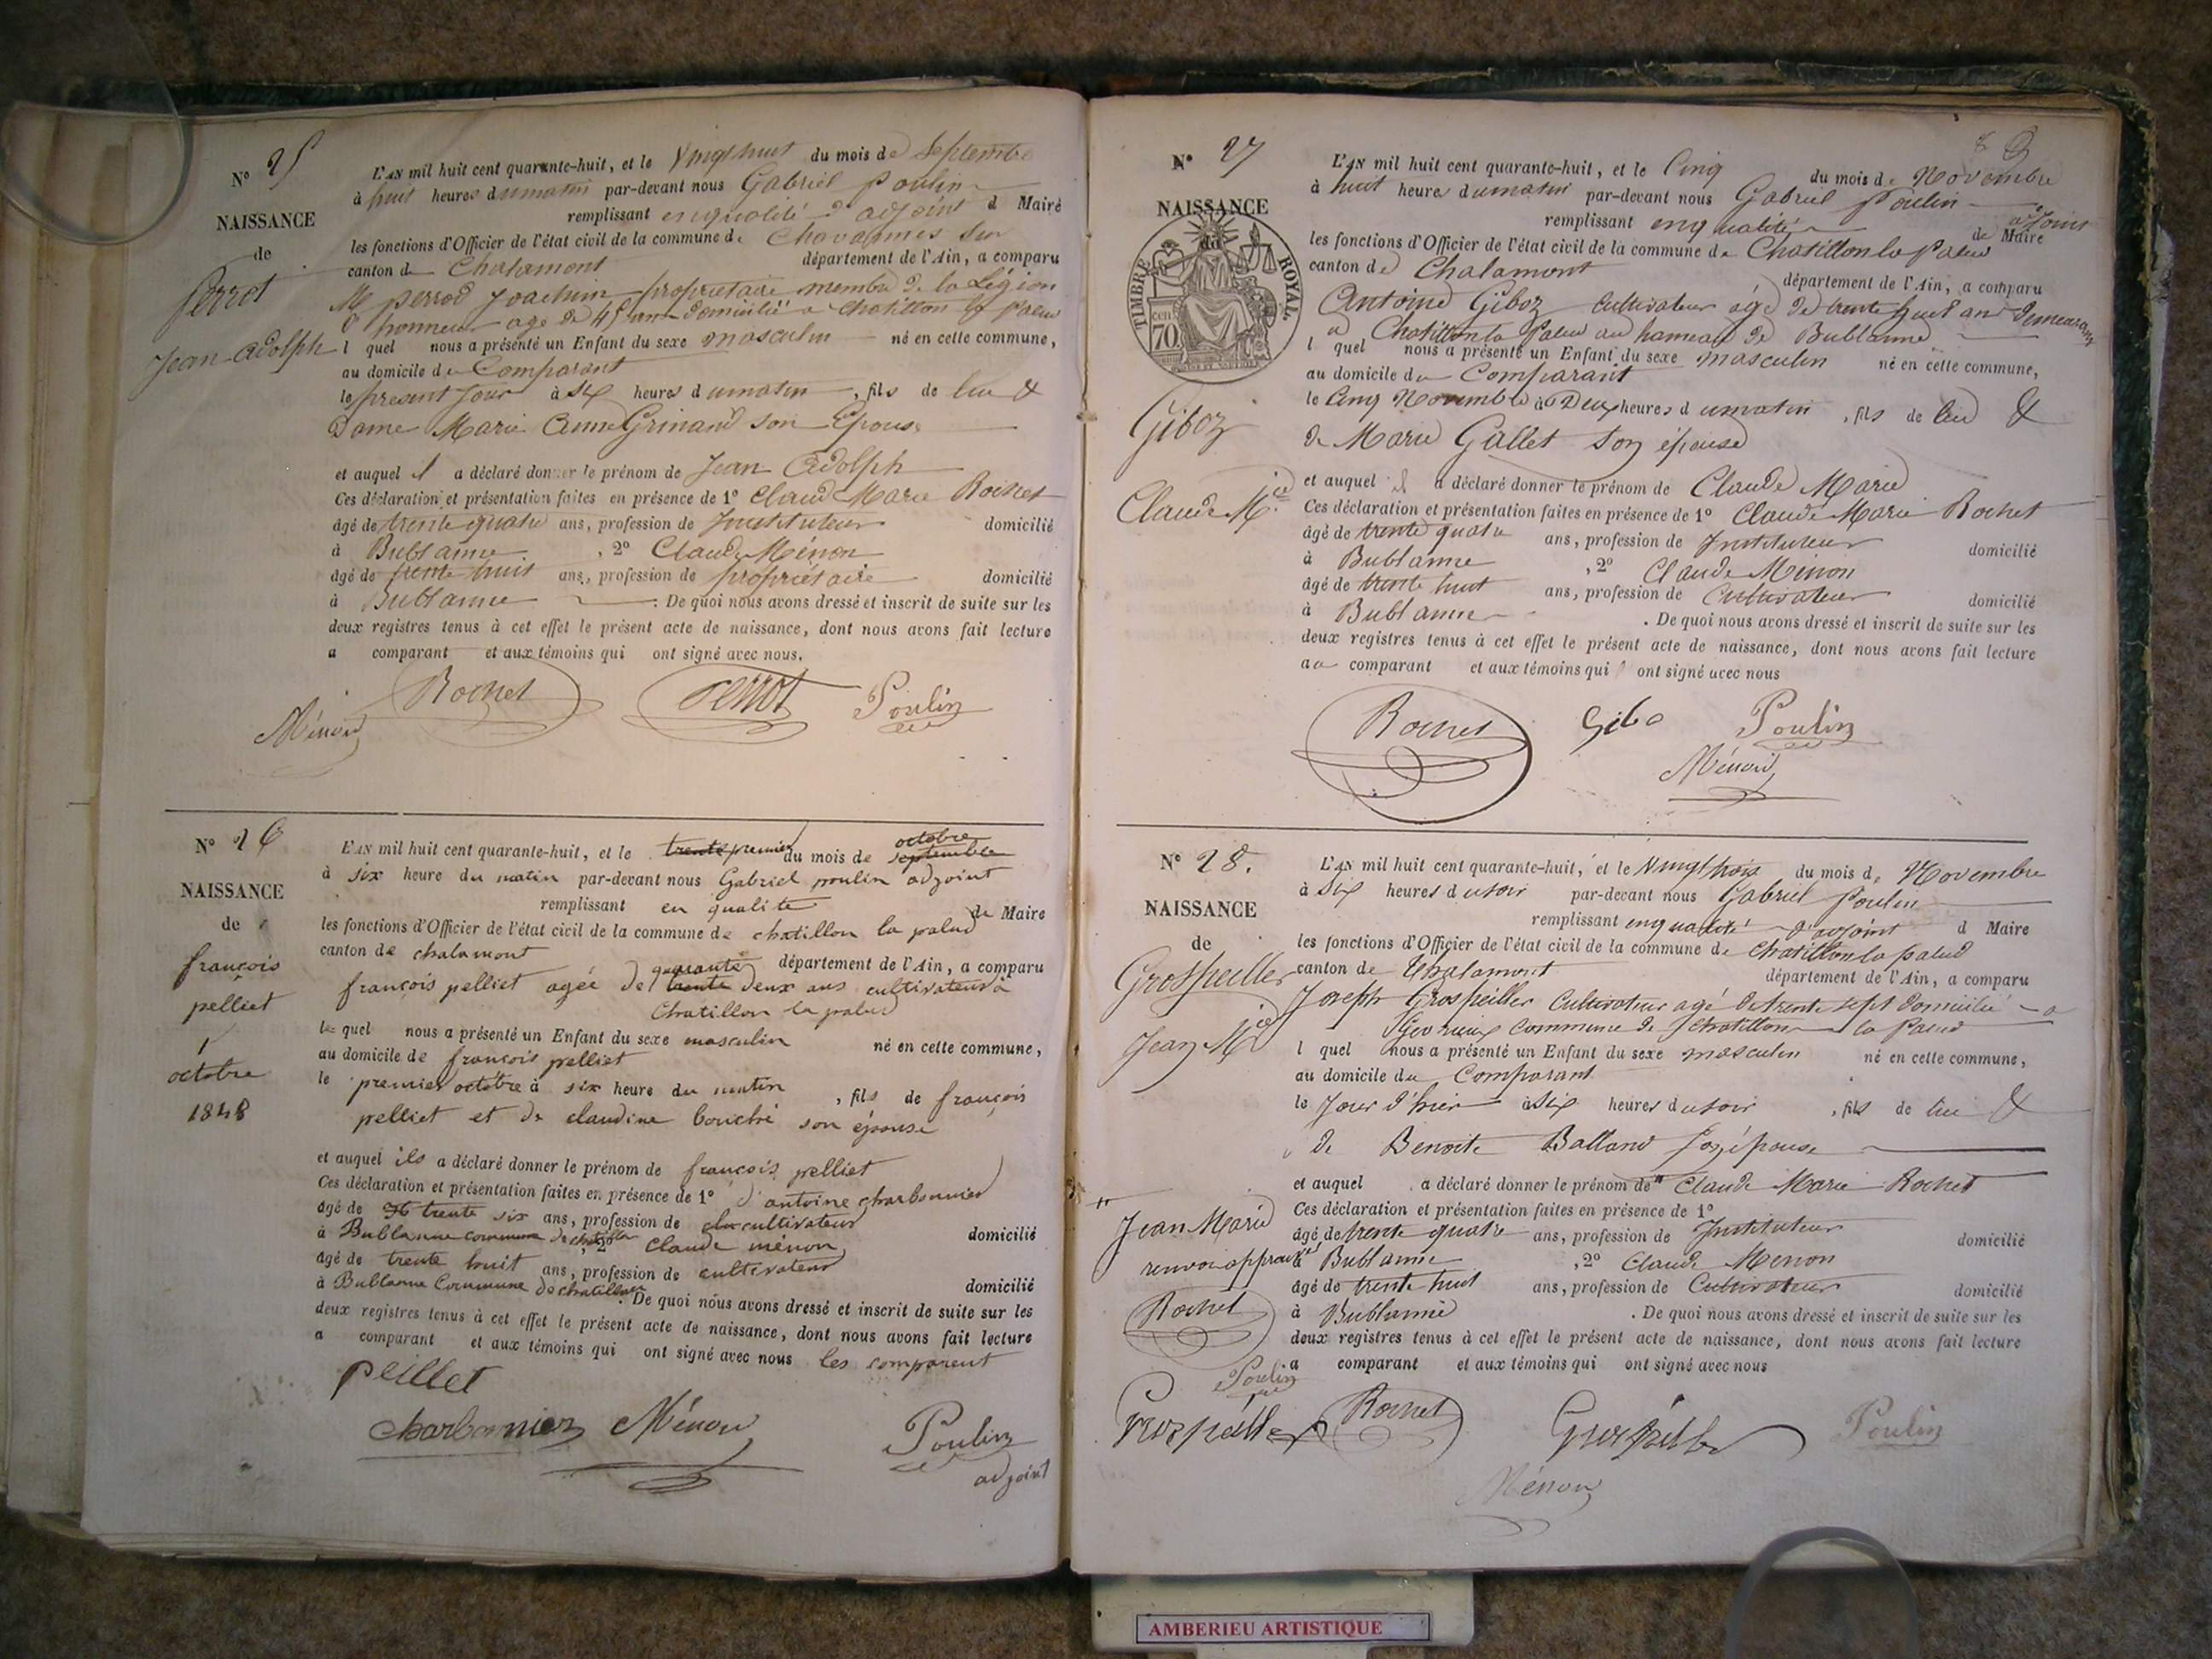 N° 25
NAISSANCE
de
Perrot
Jean-Adolph
L'AN mil huit cent quarante-huit, et le Vingthuit du mois de Septembre
à huit heures dumatin par-devant nous Gabriel Poulin
remplissant enqualité d'adjoint d Maire
les fonctions d'Officier de l'état civil de la commune de Chavannes sur
canton de Chalamont département de l'Ain, a comparu
M perrod Joachim propriétaire membre de la Légion
d'honneur agé de 45 ans domicilié a Chatillon la Palud
l quel nous a présenté un Enfant du sexe masculin né en cette commune,
au domicile du Comparant
le présent Jour à Six heures dumatin, fils de lui &
Dame Marie Anne Grinand son Epouse
et auquel il a déclaré donner le prénom de Jean Adolph
Ces déclaration et présentation faites en présence de 1° Claude Marie Rochet
âgé de trente quatre ans, profession de Instituteur domicilié
à Bublanne, 2° Claude Ménon
âgé de trente huit ans, profession de propriétaire domicilié
à Bublanne. De quoi nous avons dressé et inscrit de suite sur les
deux registres tenus à cet effet le présent acte de naissance, dont nous avons fait lecture
a comparant et aux témoins qui ont signé avec nous.
Rochet Perrot Poulin
Ménon
N° 26
NAISSANCE
de
françois
pelliet
1
octobre
1848
L'AN mil huit cent quarante-huit, et le trente premier du mois de septembre octobre
à six heure du matin par-devant nous Gabriel poulin adjoint
remplissant en qualite de Maire
les fonctions d'Officier de l'état civil de la commune de chatillon la palud
canton de chalamont département de l'Ain, a comparu
françois pelliet agée de trente quarante deux ans cultivateur à
Chatillon la palud
le quel nous a présenté un Enfant du sexe masculin né en cette commune,
au domicile de françois pelliet
le premier octobre à six heure du matin, fils de françois
pelliet et de claudine bouchié son épouse
et auquel ils a déclaré donner le prénom de françois pelliet
Ces déclaration et présentation faites en présence de 1° d'antoine charbonnier
âgé de trente six ans, profession de cultivateur
à Bublanne commune de chatillon, 2° Claude ménon domicilié
âgé de trente huit ans, profession de cultivateur
à Bublanne Commune de chatillon domicilié
. De quoi nous avons dressé et inscrit de suite sur les
deux registres tenus à cet effet le présent acte de naissance, dont nous avons fait lecture
a comparant et aux témoins qui ont signé avec nous les comparent
peillet
charbonnier Ménon Poulin
adjoint
N° 27
NAISSANCE
de
TIMBRE ROYAL.
CEN 70
Giboz
Claude M.ie
L'AN mil huit cent quarante-huit, et le Cinq du mois de Novembre
à huit heures dumatin par-devant nous Gabriel Poulin
remplissant enqualité adjoint de Maire
les fonctions d'Officier de l'état civil de la commune de Chatillon la Palud
canton de Chalamont département de l'Ain, a comparu
Antoine Giboz Cultivateur agé de trente huit ans demeurant
a Chatillon la Palud au hameau de Bublanne
l quel nous a présenté un Enfant du sexe masculin né en cette commune,
au domicile du Comparant
le Cinq Novembre à Deux heures dumatin, fils de lui &
de Marie Gallet son épouse
et auquel il a déclaré donner le prénom de Claude Marie
Ces déclaration et présentation faites en présence de 1° Claude Marie Rochet
âgé de trente quatre ans, profession de Instituteur domicilié
à Bublanne, 2° Claude Menon
âgé de trente huit ans, profession de Cultivateur domicilié
à Bublanne. De quoi nous avons dressé et inscrit de suite sur les
deux registres tenus à cet effet le présent acte de naissance, dont nous avons fait lecture
au comparant et aux témoins qui ont signé avec nous
Rochet Gibo Poulin
Ménon
N° 28.
NAISSANCE
de
Grospeiller
Jean Mie
L'AN mil huit cent quarante-huit, et le Vingttrois du mois de Novembre
à Six heures dusoir par-devant nous Gabriel Poulin
remplissant enqualité d'adjoint d Maire
les fonctions d'Officier de l'état civil de la commune de Chatillon la palud
canton de Chalamont département de l'Ain, a comparu
Joseph Grospeiller Cultivateur agé de trente sept domicilié a
Gevrieux Commune de Chatillon la Palud
l quel nous a présenté un Enfant du sexe masculin né en cette commune,
au domicile du Comparant
le Jour d'hier à Six heures dusoir, fils de lui &
de Benoite Balland son épouse
et auquel a déclaré donner le prénom de " Claude Marie Rochet
Ces déclaration et présentation faites en présence de 1°
âgé de trente quatre ans, profession de Instituteur domicilié
à Bublanne, 2° Claude Menon
âgé de trente huit ans, profession de Cultivateur domicilié
à Bublanne. De quoi nous avons dressé et inscrit de suite sur les
deux registres tenus à cet effet le présent acte de naissance, dont nous avons fait lecture
a comparant et aux témoins qui ont signé avec nous
" Jean Marie
renvoi approuvé
Rochet
Poulin
Grospeiller Rochet Grospeiller Poulin
Ménon
AMBERIEU ARTISTIQUE